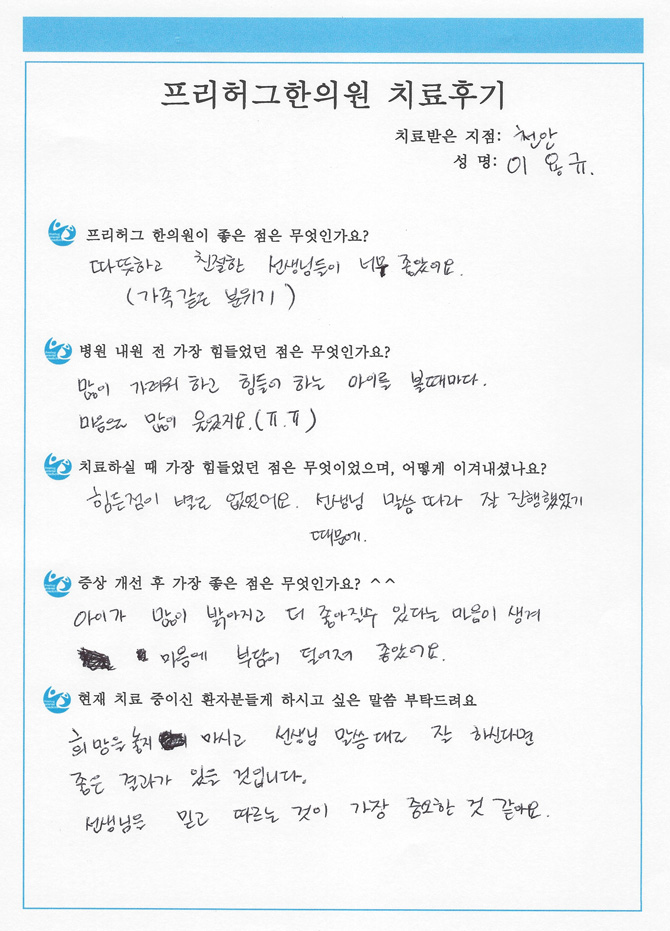 프리허그한의원 치료후기
치료받은 지점: 천안
성 명: 이 용규.
프리허그 한의원이 좋은 점은 무엇인가요?
따뜻하고 친절한 선생님들이 너무 좋았어요.
(가족같은 분위기)
병원 내원 전 가장 힘들었던 점은 무엇인가요?
많이 가려워 하고 힘들어 하는 아이를 볼때마다.
마음으로 많이 울었지요.(ㅠ.ㅠ)
치료하실 때 가장 힘들었던 점은 무엇이었으며, 어떻게 이겨내셨나요?
힘든점이 별로 없었어요. 선생님 말씀 따라 잘 진행했었기
때문에.
증상 개선 후 가장 좋은 점은 무엇인가요? ^^
아이가 많이 밝아지고 더 좋아질수 있다는 마음이 생겨
마음에 부담이 덜어져 좋았어요.
현재 치료 중이신 환자분들게 하시고 싶은 말씀 부탁드려요
희망을 놓지 마시고 선생님 말씀대로 잘 하신다면
좋은 결과가 있을 것입니다.
선생님을 믿고 따르는 것이 가장 중요한 것 같아요.